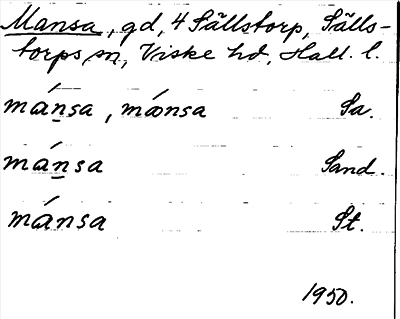 Mansa, gd, 4 Sällstorp, Sälls-
torps sn, Viske hd, Hall. l.
mánsa, mánsa Sa.
mánsa Sand.
mánsa St.
1950.